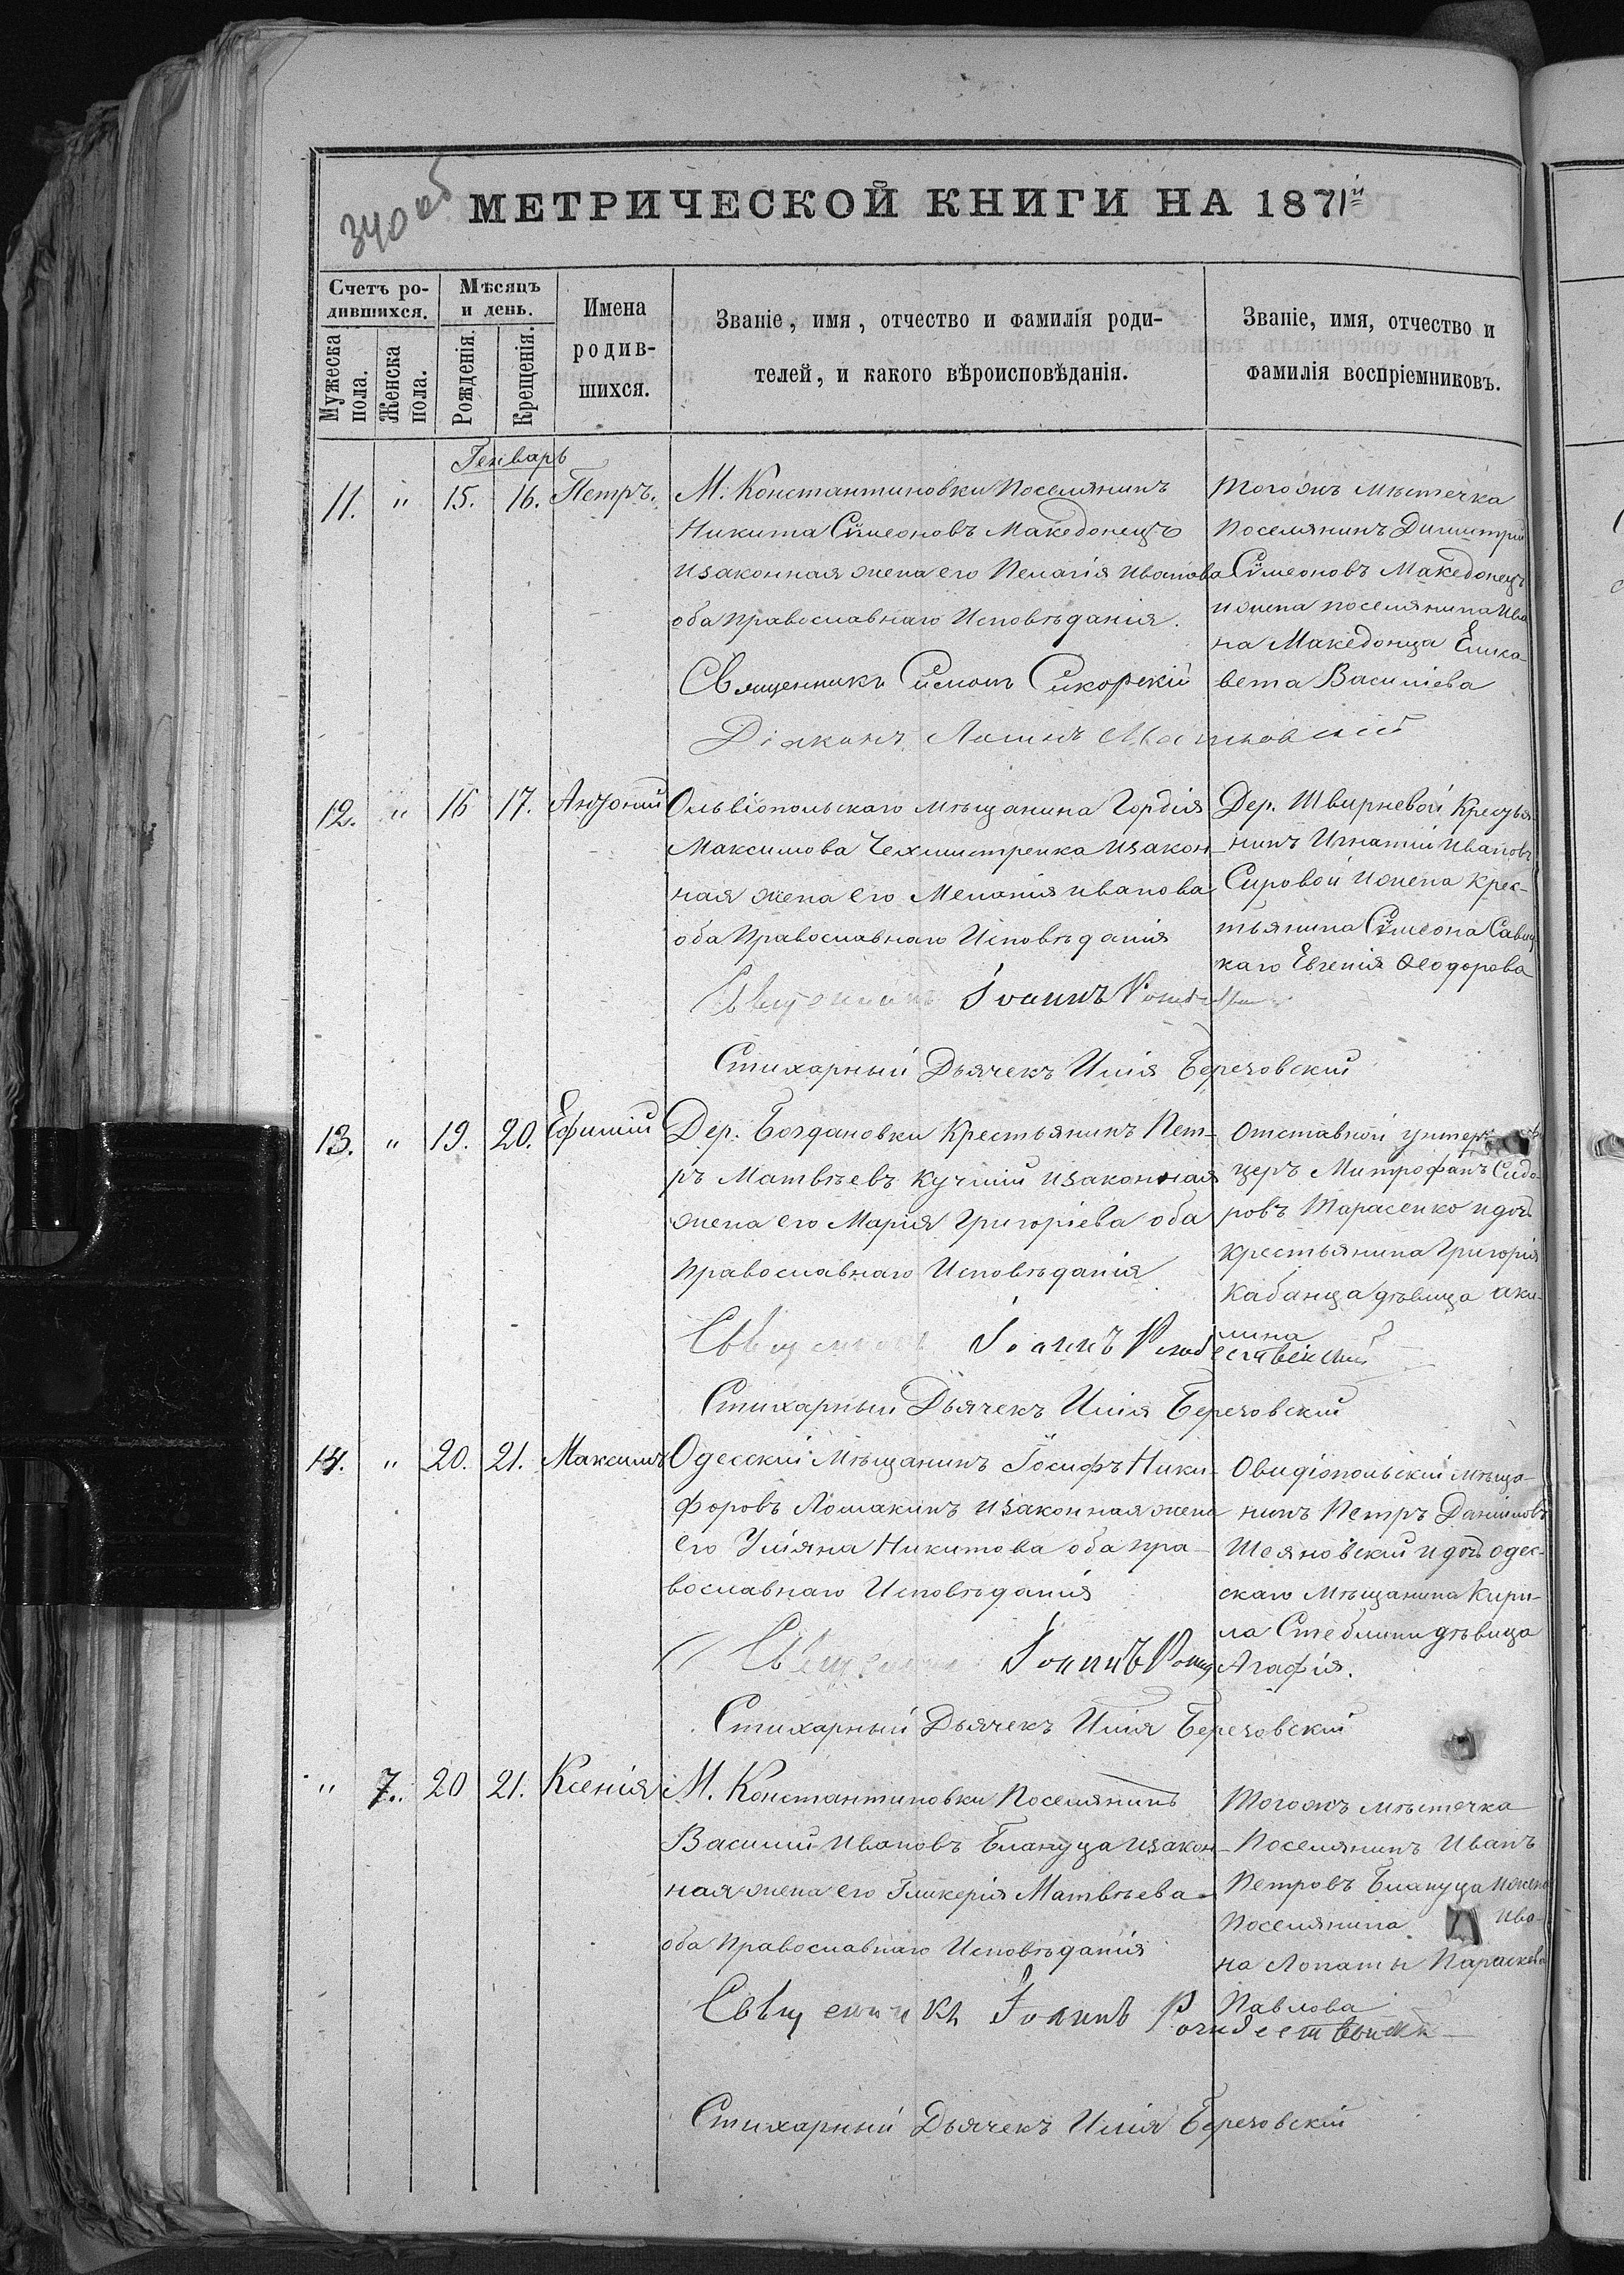 340 об
МЕТРИЧЕСКОЙ КНИГИ НА 1871й
Счетъ ро-
дившихся.
Мужеска пола.
Женска пола.
Мѣсяцъ
и день.
Рожденія.
Крещенія.
Имена
родив-
шихся.
Званіе, имя, отчество и фамилія роди-
телей, и какого вѣроисповѣданія.
Званіе, имя, отчество и
фамилія воспріемниковъ.
Генварь
11. " 15. 16. Петръ.
М. Константиновки Поселянинъ
Никита Сѷмеоновъ Македонецъ
изаконная жена его Пелагія Иванова
оба православнаго Исповѣданія.
Священникъ Симонъ Сикорскій
Діаконъ
Тогожъ мѣстечка
поселянинъ Димитрій
Сѷмеоновъ Македонецъ
и жена поселянина Ива
на Македонца Елиса-
вета Василіева
12. " 16 17. Антоній
Ольвіопольскаго мѣщанина Гордія
Максимова Чехмистренка изакон-
ная жена его Меланія Иванова
оба Православнаго Исповѣданія
Іоаннъ
Стихарный Дьячекъ Илія Березовскій
Дер. Швырневой Кресть-
нинъ Игнатій Ивановъ
Суровой и жена крес-
тьянина Сѷмеона Савиц
каго Евгенія Ѳеодорова
13. " 19. 20. Ефимій
Дер. Богдановки Крестьянинъ Пет-
ръ Матвѣевъ Кучмій изаконная
жена его Марія Григоріева оба
православнаго Исповѣданія
Іоаннъ Рождественскій
Стихарный Дьячекъ Илія Березовскій
Отставной унтер
церъ Митрофанъ Сидо-
ровъ Тарасенко и дочь
крестьянина Григорія
Кабанца дѣвица аки-
лина
14. " 20. 21. Максимъ
Одесскій Мѣщанинъ Іосифъ Ники-
форовъ Ломакинъ изаконная жена
его Уліяна Никитова оба пра-
вославнаго Исповѣданія
Іоаннъ
Стихарный Дьячекъ Илія Березовскій
Овидіопольскій мѣща-
нинъ Петръ Даниловъ
Шеяновскій и дочь одес-
скаго мѣщанина Кири-
ла дѣвица
Агафія.
" 7. 20 21. Ксенія
М. Константиновки Поселянинъ
Василій Ивановъ Блануца изакон-
ная жена его Гликерія Матвѣева
оба Православнаго Исповѣданія
Священникъ Іоаннъ Рождественскій
Стихарный Дьячекъ Илія Березовскій
Тогожъ мѣстечка
Поселянинъ Иванъ
Петровъ Блануца и жена
Поселянина Ива-
на Лопаты Параскева
Павлова